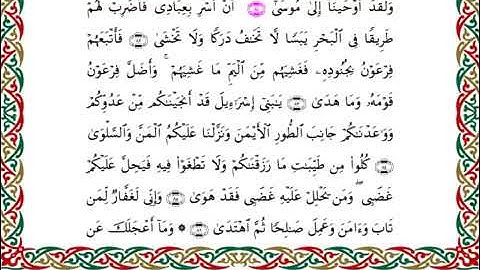 وَلَقَدْ أَوْحَيْنَا إِلَىٰ مُوسَىٰٓ ۝ أَنْ أَسْرِ بِعِبَادِى فَاضْرِبْ لَهُمْ
طَرِيقًا فِى ٱلْبَحْرِ يَبَسًا لَّا تَخَٰفُ دَرَكًا وَلَا تَخْشَىٰ ۝ فَأَتْبَعَهُمْ
فِرْعَوْنُ بِجُنُودِهِۦ فَغَشِيَهُم مِّنَ ٱلْيَمِّ مَا غَشِيَهُمْ ۚ وَأَضَلَّ فِرْعَوْنُ
قَوْمَهُۥ وَمَا هَدَىٰ ۝ يَٰبَنِىٓ إِسْرَٰٓءِيلَ قَدْ أَنجَيْنَٰكُم مِّنْ عَدُوِّكُمْ
وَوَٰعَدْنَٰكُمْ جَانِبَ ٱلطُّورِ ٱلْأَيْمَنَ وَنَزَّلْنَا عَلَيْكُمُ ٱلْمَنَّ وَٱلسَّلْوَىٰ
۝ كُلُوا۟ مِن طَيِّبَٰتِ مَا رَزَقْنَٰكُمْ وَلَا تَطْغَوْا۟ فِيهِ فَيَحِلَّ عَلَيْكُمْ
غَضَبِى ۖ وَمَن يَحْلِلْ عَلَيْهِ غَضَبِى فَقَدْ هَوَىٰ ۝ وَإِنِّى لَغَفَّارٌ لِّمَن
تَابَ وَءَامَنَ وَعَمِلَ صَٰلِحًا ثُمَّ ٱهْتَدَىٰ ۝ ۞ وَمَآ أَعْجَلَكَ عَن